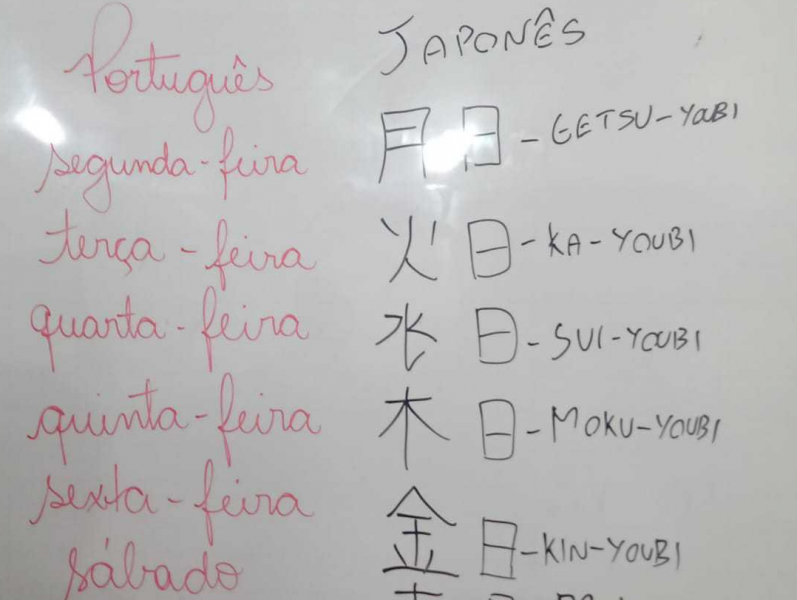 Português JAPONÊS
segunda-feira 月日-GETSU-YOUBI
terça-feira 火日-KA-YOUBI
quarta-feira 水日-SUI-YOUBI
quinta-feira 木日-MOKU-YOUBI
sexta-feira 金日-KIN-YOUBI
sábado